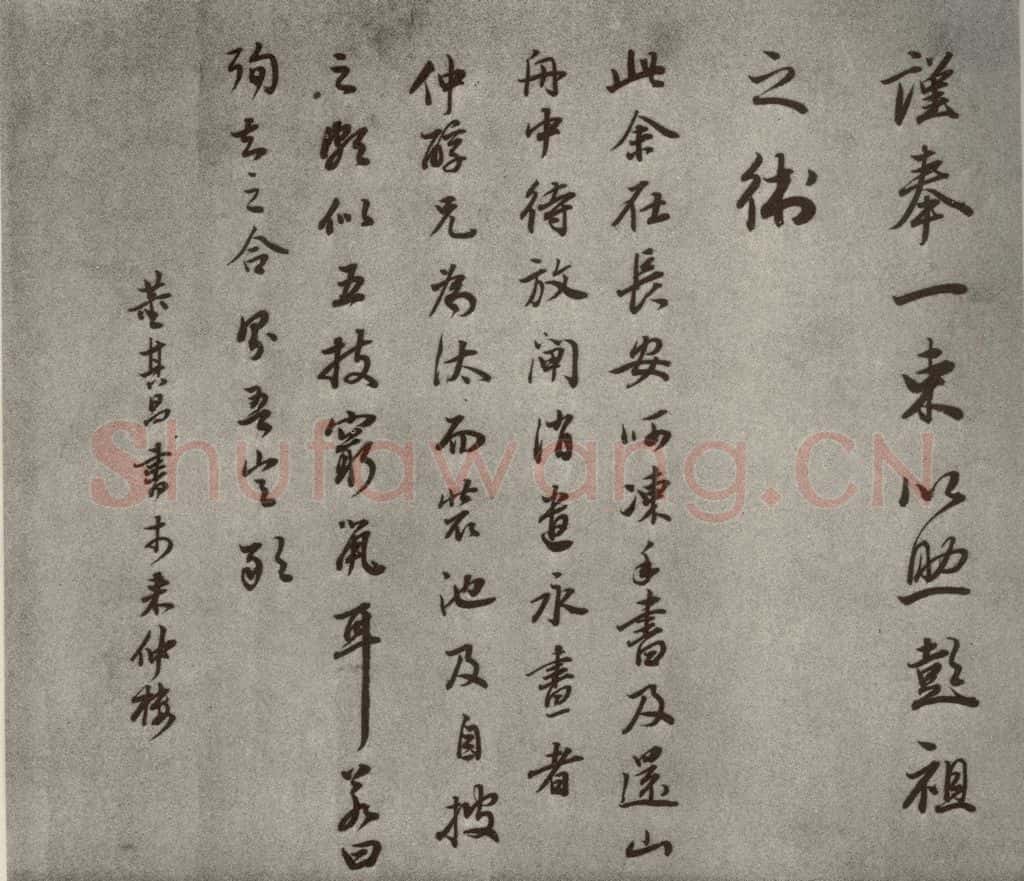 謹奉一束以助彭祖
之術
此余在長安呵凍手書及還山
舟中待放閘消遣永晝者
仲醇兄為汰而裝池及自披
之頗似五技窮鼠耳若曰
殉去之合
吾
董其昌書於來仲樓
Shufawang.CN